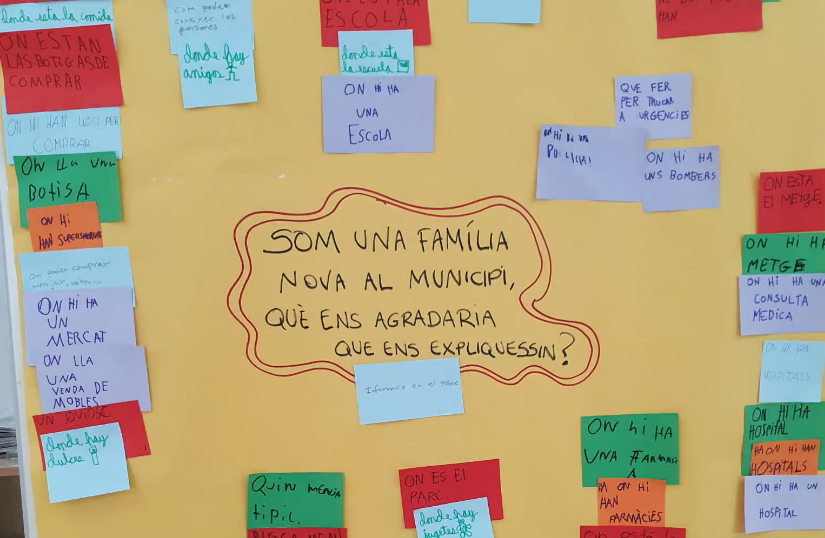 donde esta la comida
ON ESTAN
LAS BOTIGAS DE
COMPRAR
ON HI HAN LLOCS PER
COMPRAR
ON LLA UNA
BOTISA
ON Hi
HAN SUPERMERCAT
On podem comprar
menjar, roba...
ON HI HA
UN
MERCAT
ON LLA
UNA
VENDA DE
MOBLES
UN QUIOSC
donde hay
dulces
Com podem
conèixer les
persones
donde hay
amigos
ESCOLA
donde esta
la escuela
ON Hi HA
UNA
ESCOLA
HAN
QUE FER
PER TRUCAR
A URGENCIES
ON HI HA UNA
POLICIA
ON Hi HA
UNS BOMBERS
SOM UNA FAMÍLIA
NOVA AL MUNICIPI,
QUÈ ENS AGRADARIA
QUE ENS EXPLIQUESSIN?
Informacio en el poble
ON ESTA
El METGE
ON Hi HA
METGE
ON HI HA UNA
CONSULTA
MEDICA
ON HI HA
HOSPITALS
ON HI HA
HOSPITAL
HA ON HI HAN
HOSPITALS
ON Hi HA UN
HOSPITAL
ON hi HA
UNA FARMASI
A
HA ON HI
HAN
FARMÀCIES
QuiN MENJA
tipic.
ON ES El
PARC
donde hay
jugetes